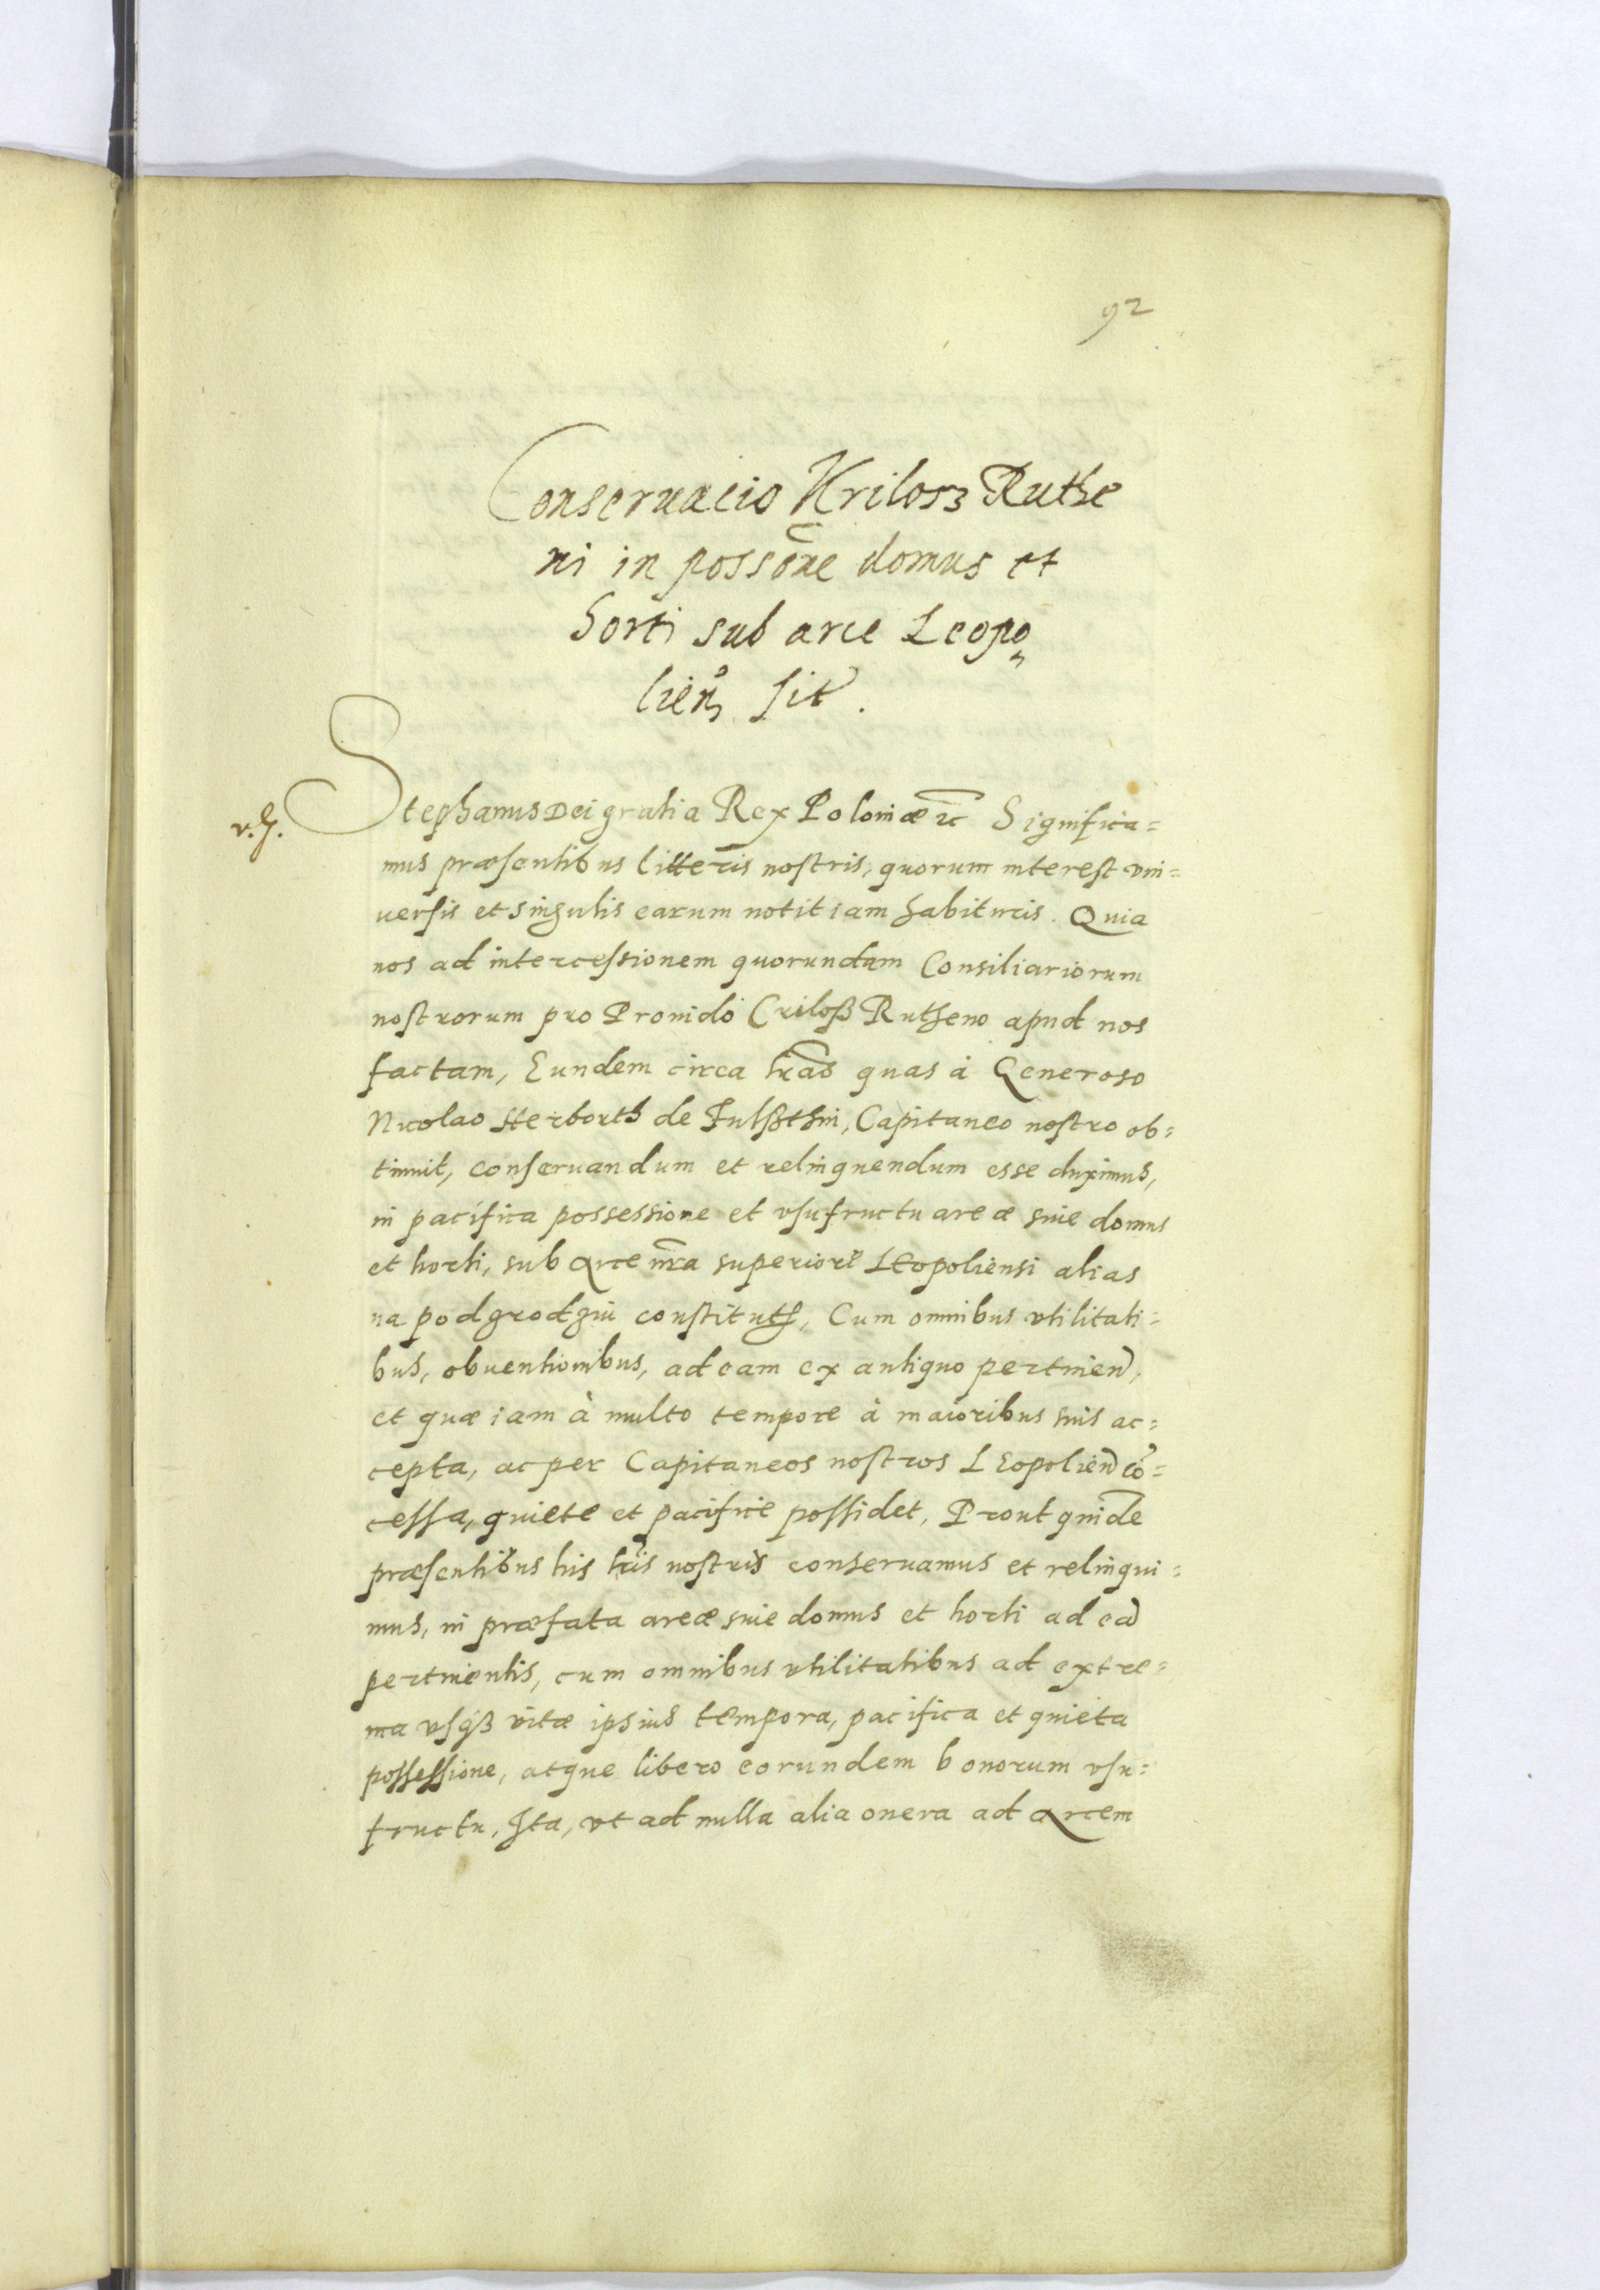 92
Conseruacio Krilosz Ruthe
ni in possone domus et
horti sub arce Leopo
lien sit.
v. h.
Stephanus Dei gratia Rex Poloniæ etc Significa=
mus præsentibus litteris nostris, quorum interest vni=
uersis et singulis earum notitiam habituris. Quia
nos ad intercessionem quorundam Consiliariorum
nostrorum pro Prouido Criloß Rutheno apud nos
factam, Eundem circa lras quas à Generoso
Nicolao Herborth de Fulßthin, Capitaneo nostro ob=
tinuit, conseruandum et relinquendum esse duximus,
in pacifica possessione et vsufructu areæ siue domus
et horti, sub Arce nra superiori LEopoliensi alias
na podgrodziu constitut, Cum omnibus vtilitati=
bus, obuentionibus, ad eam ex antiquo pertinen,
et quæ iam à multo tempore à maioribus suis ac=
cepta, ac per Capitaneos nostros LEopolien cō=
cessa, quiete et pacifice possidet, Prout quidē
præsentibus his lris nostris conseruamus et relinqui=
mus, in præfata areæ siue domus et horti ad eā
pertinentis, cum omnibus vtilitatibus ad extre=
ma vsqß vitæ ipsius tempora, pacifica et quieta
possessione, atque libero eorundem bonorum vsu=
fructu, Ita, vt ad nulla alia onera ad Arcem